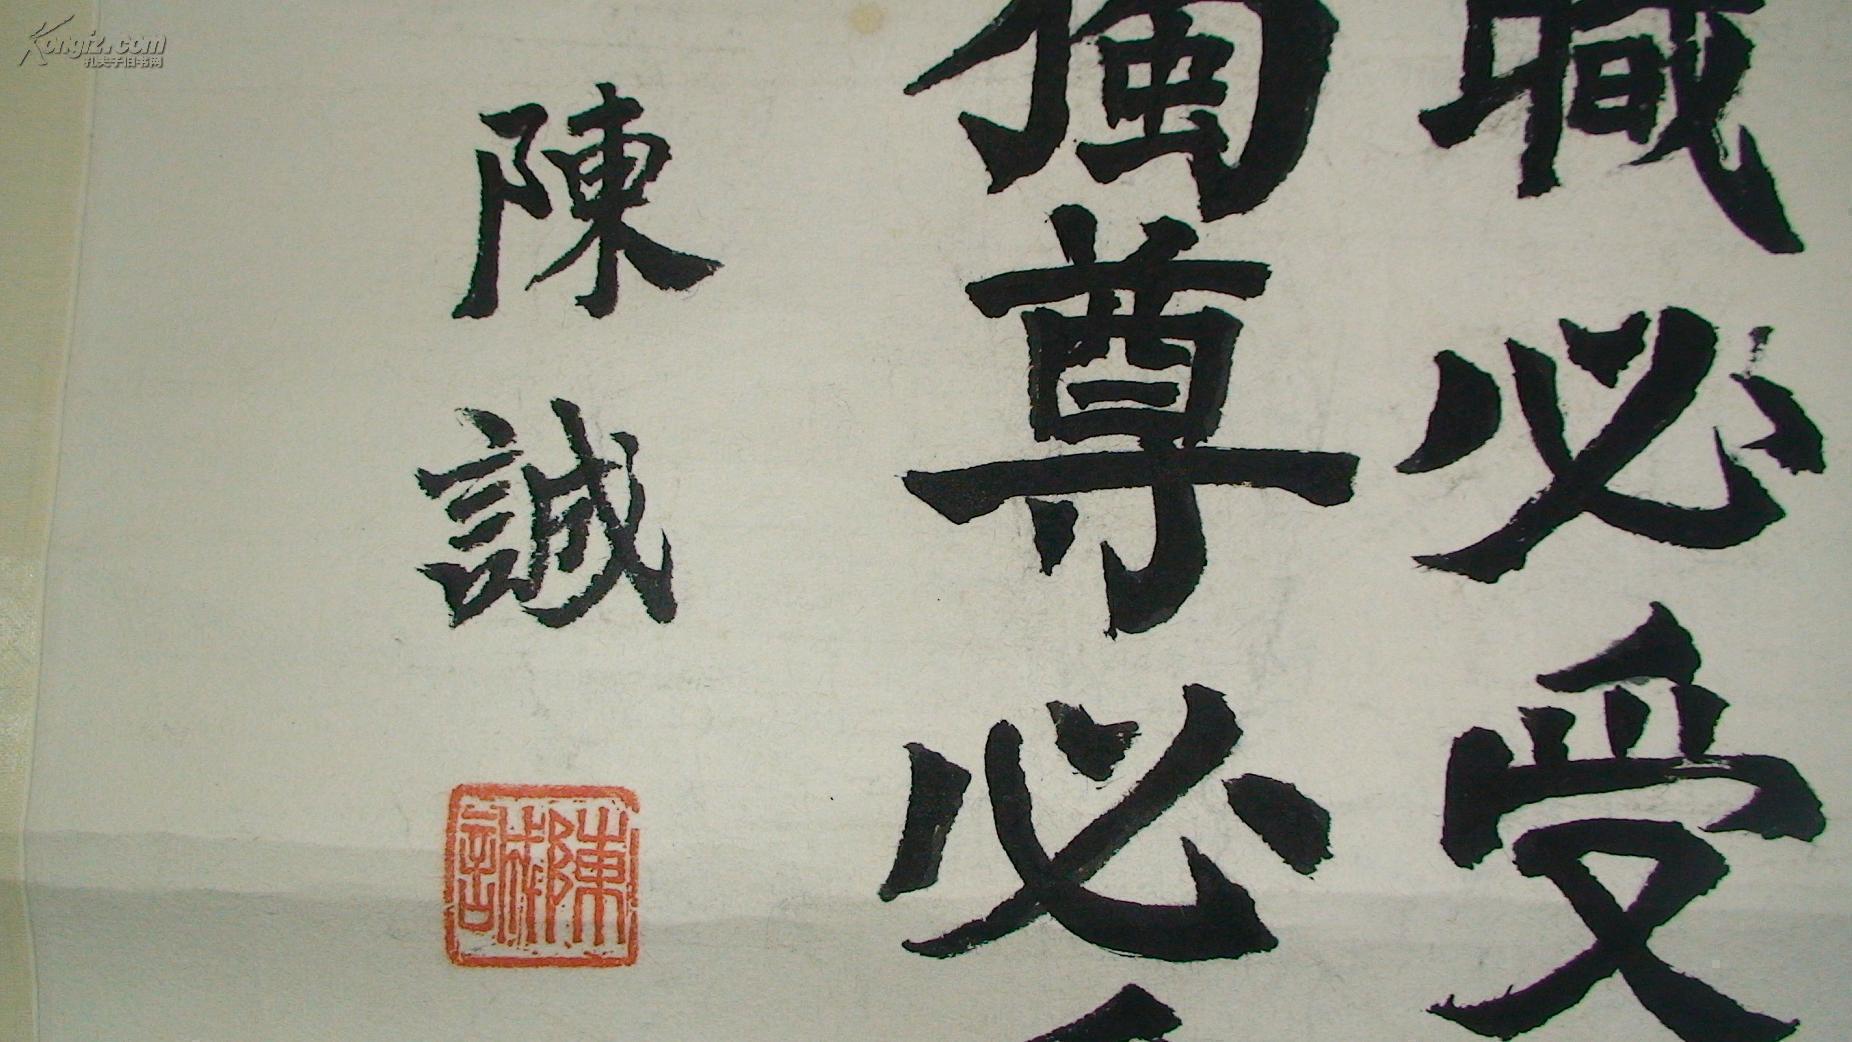 職必受
獨尊必
陳誠
陳誠
Kongfz.com
孔夫子旧书网